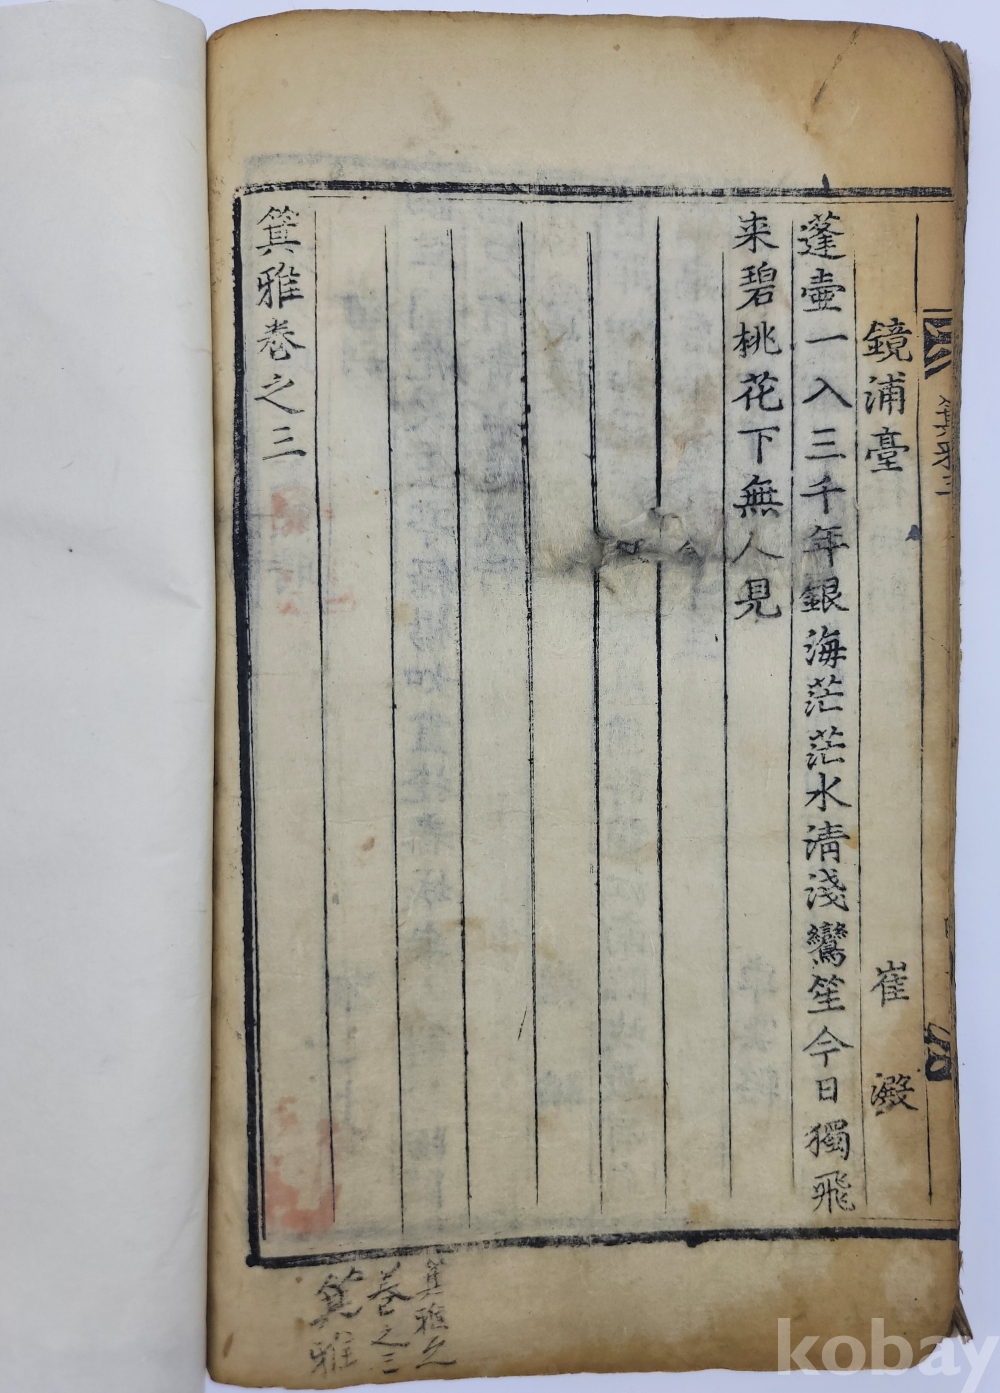 鏡浦臺 崔澱
蓬壷一入三千年銀海茫茫水淸淺鸞笙今日獨飛
来碧桃花下無人見
箕雅卷之三
箕雅三
箕雅
卷之三
箕雅
kobay